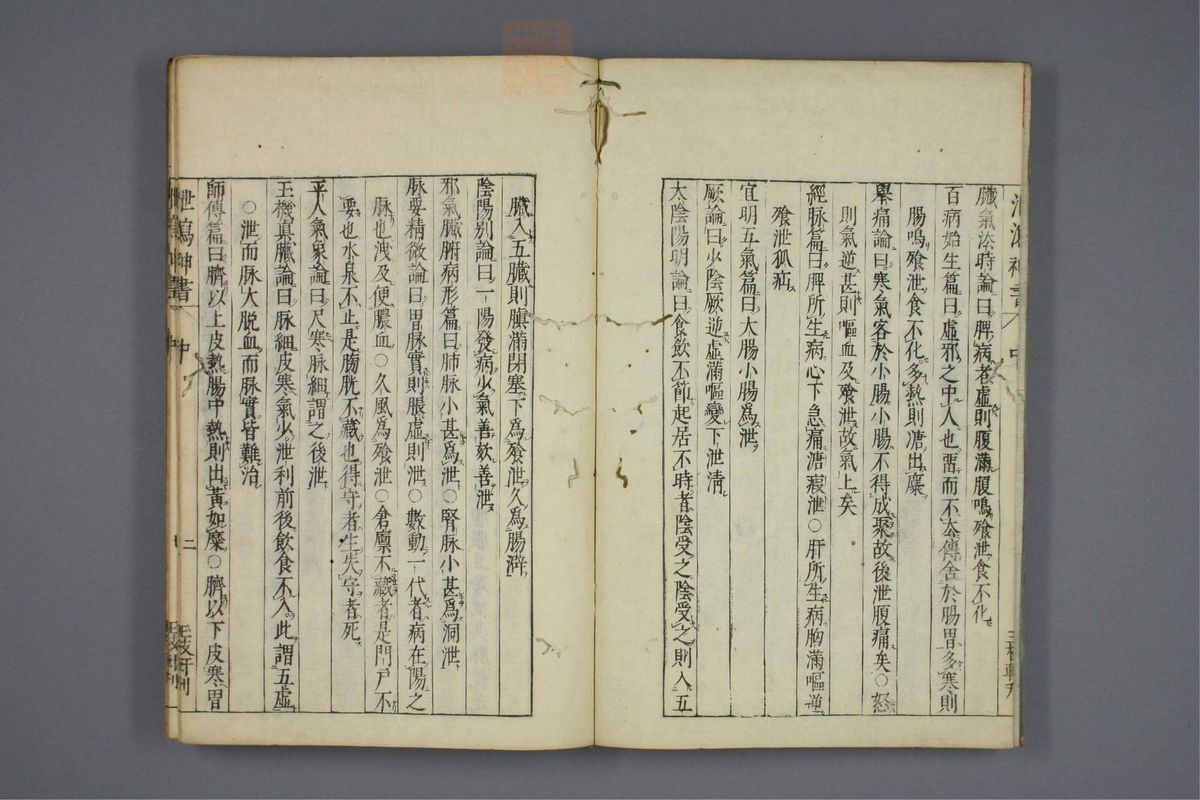 臟氣法時論曰脾病者虛則腹滿腹鳴飧泄食不化
百病始生篇曰虛邪之中人也畱而不去傳舍於腸胃多寒則
腸鳴飧泄食不化多熱則溏出糜
舉痛論曰寒氣客於小腸小腸不得成聚故後泄腹痛矣○怒
則氣逆甚則嘔血及飧泄故氣上矣
經脉篇曰脾所生病心下急痛溏瘕泄○肝所生病胸滿嘔逆
飧泄狐疝
宣明五氣篇曰大腸小腸爲泄
厥論曰少陰厥逆虛滿嘔變下泄清
太陰陽明論曰食飲不節起居不時者陰受之陰受之則入五
臟入五臟則䐜滿閉塞下爲飧泄久爲腸澼
陰陽別論曰一陽發病少氣善欬善泄
邪氣臟腑病形篇曰肺脉小甚爲泄○腎脉小甚爲洞泄
脉要精微論曰胃脉實則脹虛則泄○數動一代者病在陽之
脉也洩及便膿血○久風爲飧泄○倉廩不藏者是門戶不
要也水泉不止是膀胱不藏也得守者生失守者死
平人氣象論曰尺寒脉細謂之後泄
王機眞臟論曰脉細皮寒氣少泄利前後飲食不入此謂五虛
○泄而脉大脫血而脉實皆難治
師傳篇曰臍以上皮熱腸中熱則出黃如糜○臍以下皮寒胃
泄瀉神書
中
二